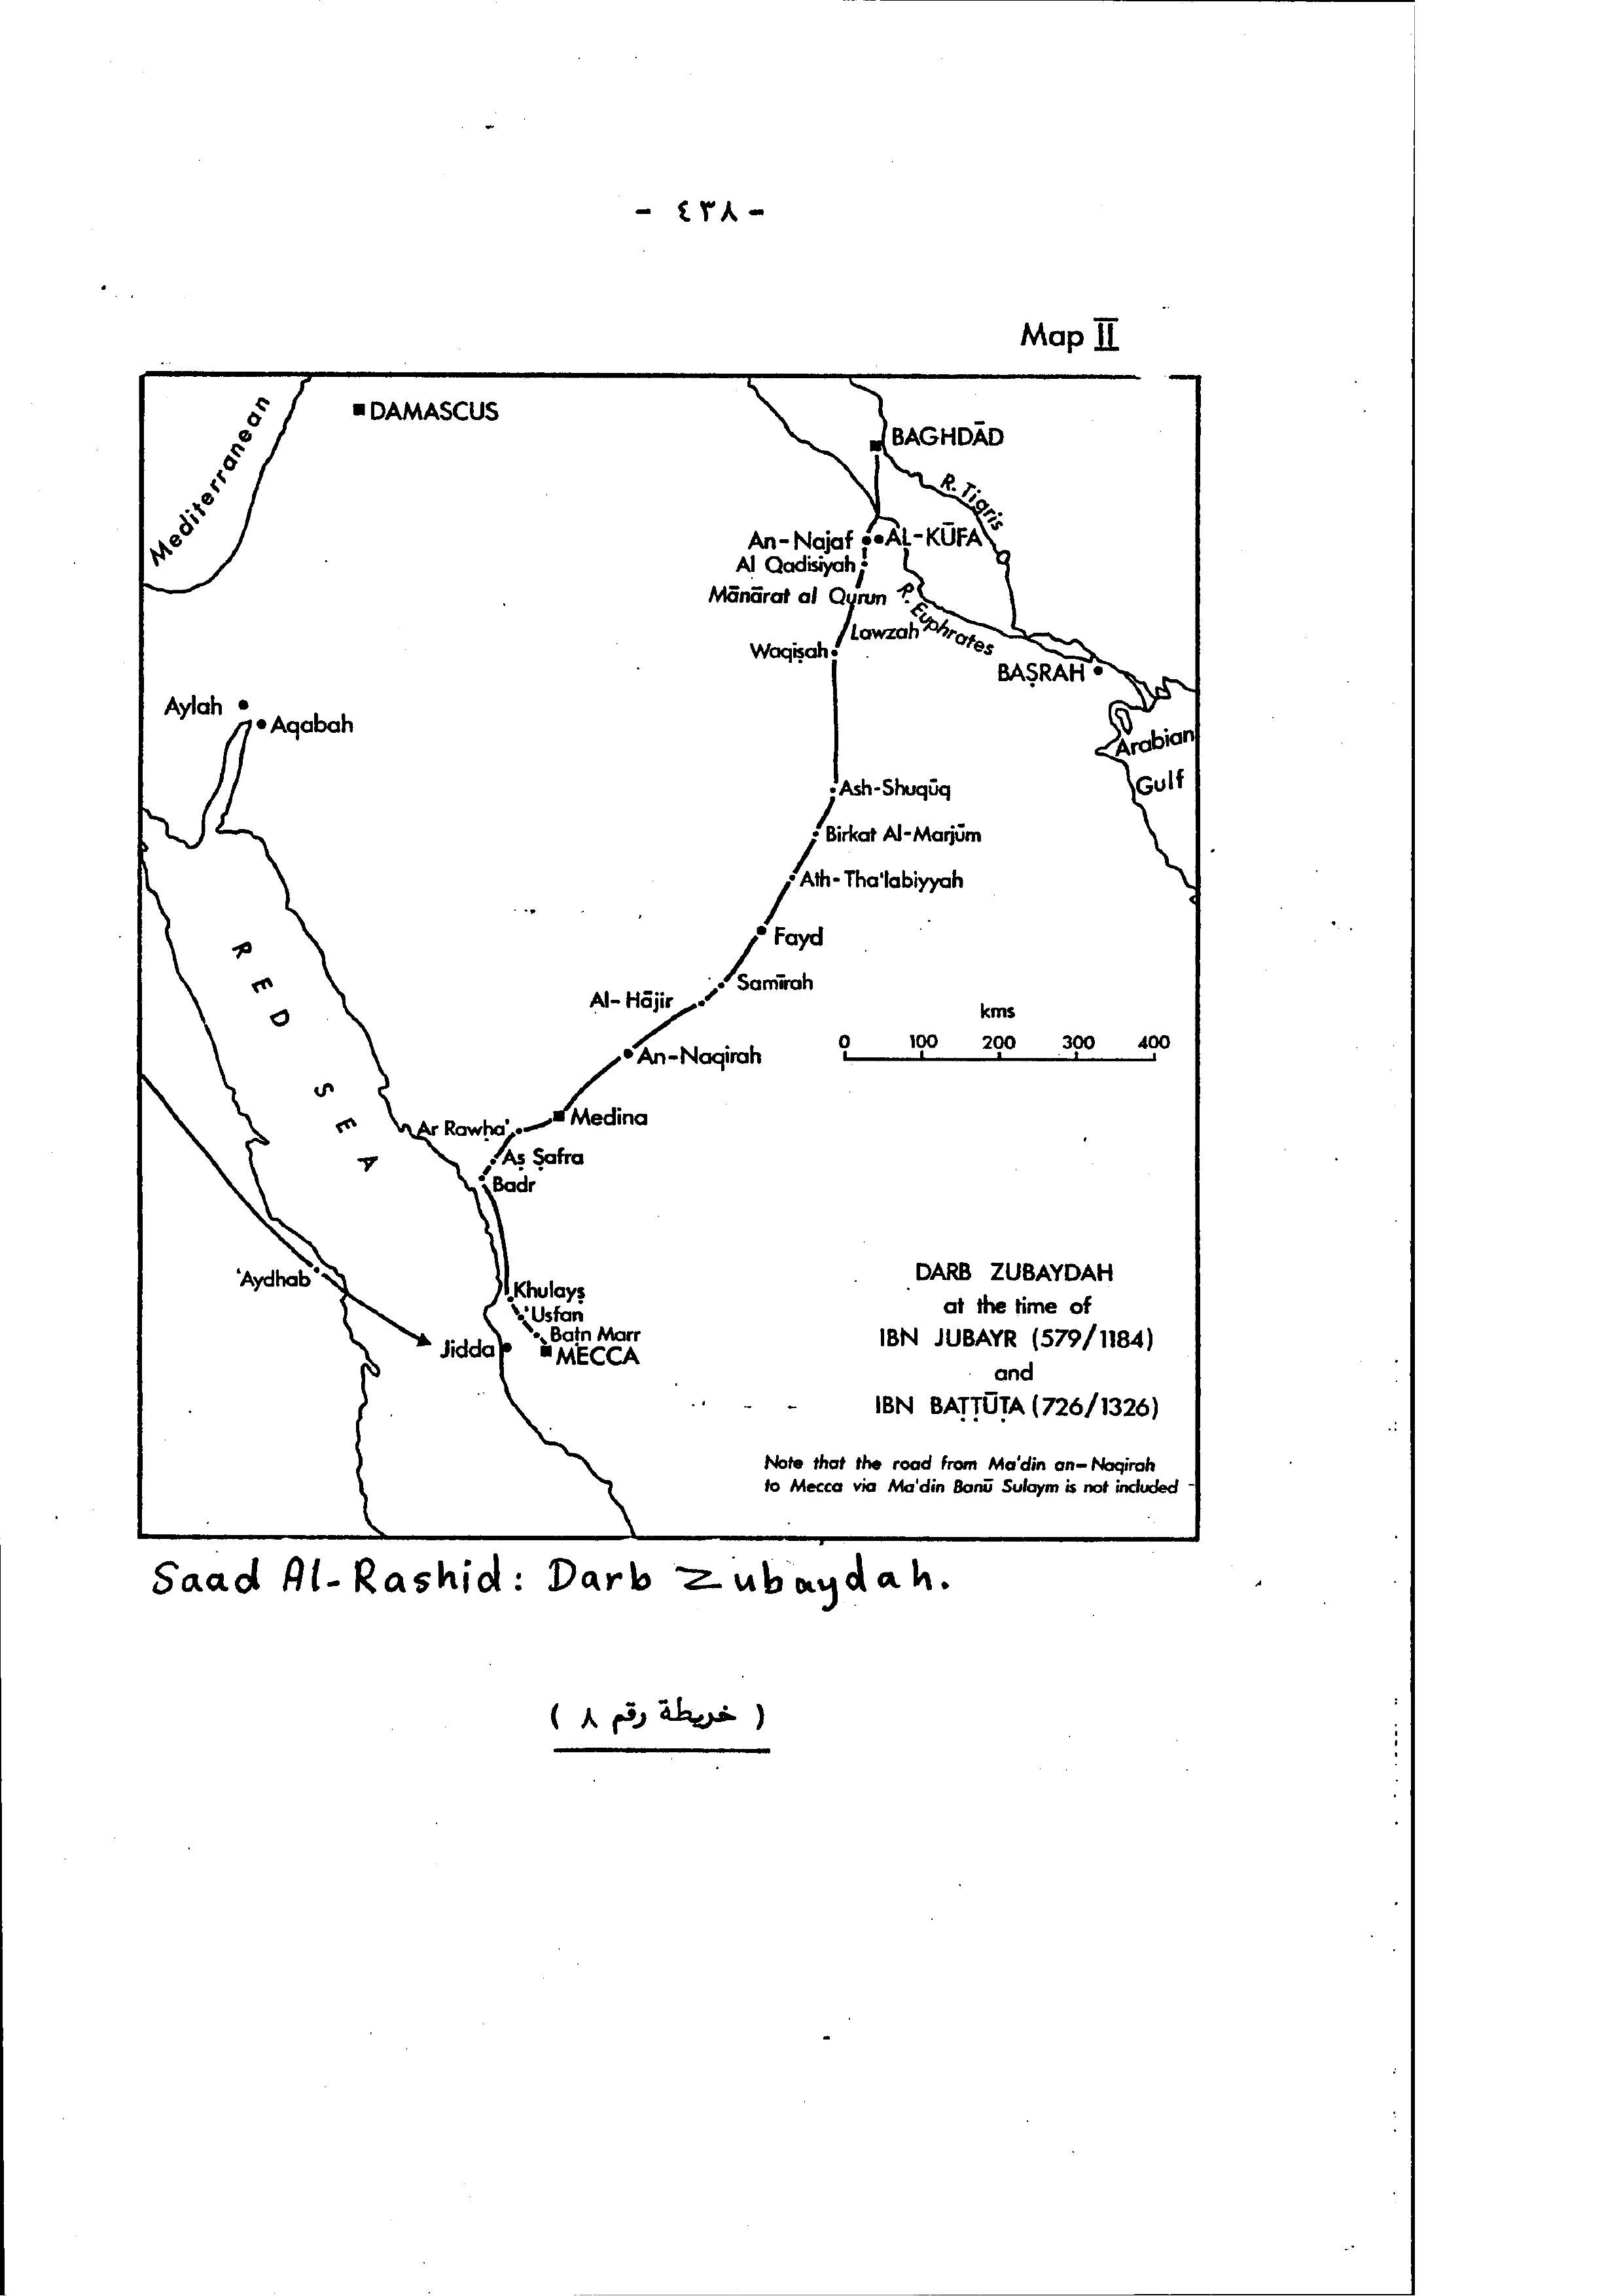 - ٤٣٨ -
Map II
Mediterranean
DAMASCUS
BAGHDĀD
R. Tigris
An-Najaf
AL-KŪFA
Al Qadisiyah
Mānārat al Qurun
R. Euphrates
Lawzah
Waqiṣah
BAṢRAH
Aylah
Aqabah
Arabian
Gulf
Ash-Shuqūq
Birkat Al-Marjūm
Ath-Tha'labiyyah
Fayd
RED SEA
Samīrah
Al-Hājir
kms
0 100 200 300 400
An-Naqirah
Medina
Ar Rawḥa'
Aṣ Ṣafra
Badr
'Aydhab
Khulayṣ
'Usfan
Batn Marr
Jidda
MECCA
DARB ZUBAYDAH
at the time of
IBN JUBAYR (579/1184)
and
IBN BAṬṬŪṬA (726/1326)
Note that the road from Ma'din an-Naqirah
to Mecca via Ma'din Banū Sulaym is not included
Saad Al-Rashid: Darb Zubaydah.
( خريطة رقم ٨ )